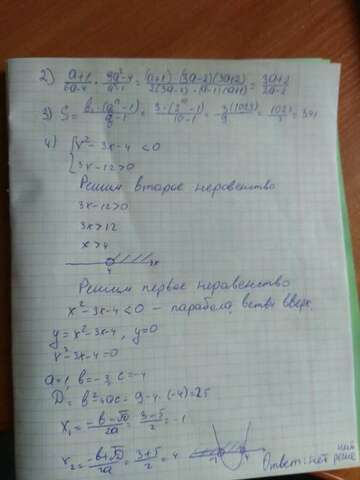 2) (a+1)/(6a-4) · (9a²-4)/(a²-1) = (a+1)·(3a-2)(3a+2)/2(3a-2)·(a-1)(a+1) = (3a+2)/(2a-2)
3) S = b₁·(qⁿ-1)/(q-1) = 3·(2¹⁰-1)/(10-1) = 3(1023)/9 = 1023/3 = 341
4) { x²-3x-4 <0
3x-12>0
Решим второе неравенство
3x-12>0
3x>12
x>4
4
Решим первое неравенство
x²-3x-4<0 – парабола, ветви вверх.
y=x²-3x-4, y=0
x²-3x-4=0
a=1, b=-3, c=-4
D=b²-4ac=9-4·(-4)=25
x₁=(-b-√D)/2a=(3-5)/2=-1
x₂=(-b+√D)/2a=(3+5)/2=4
Ответ: нет реше
ний